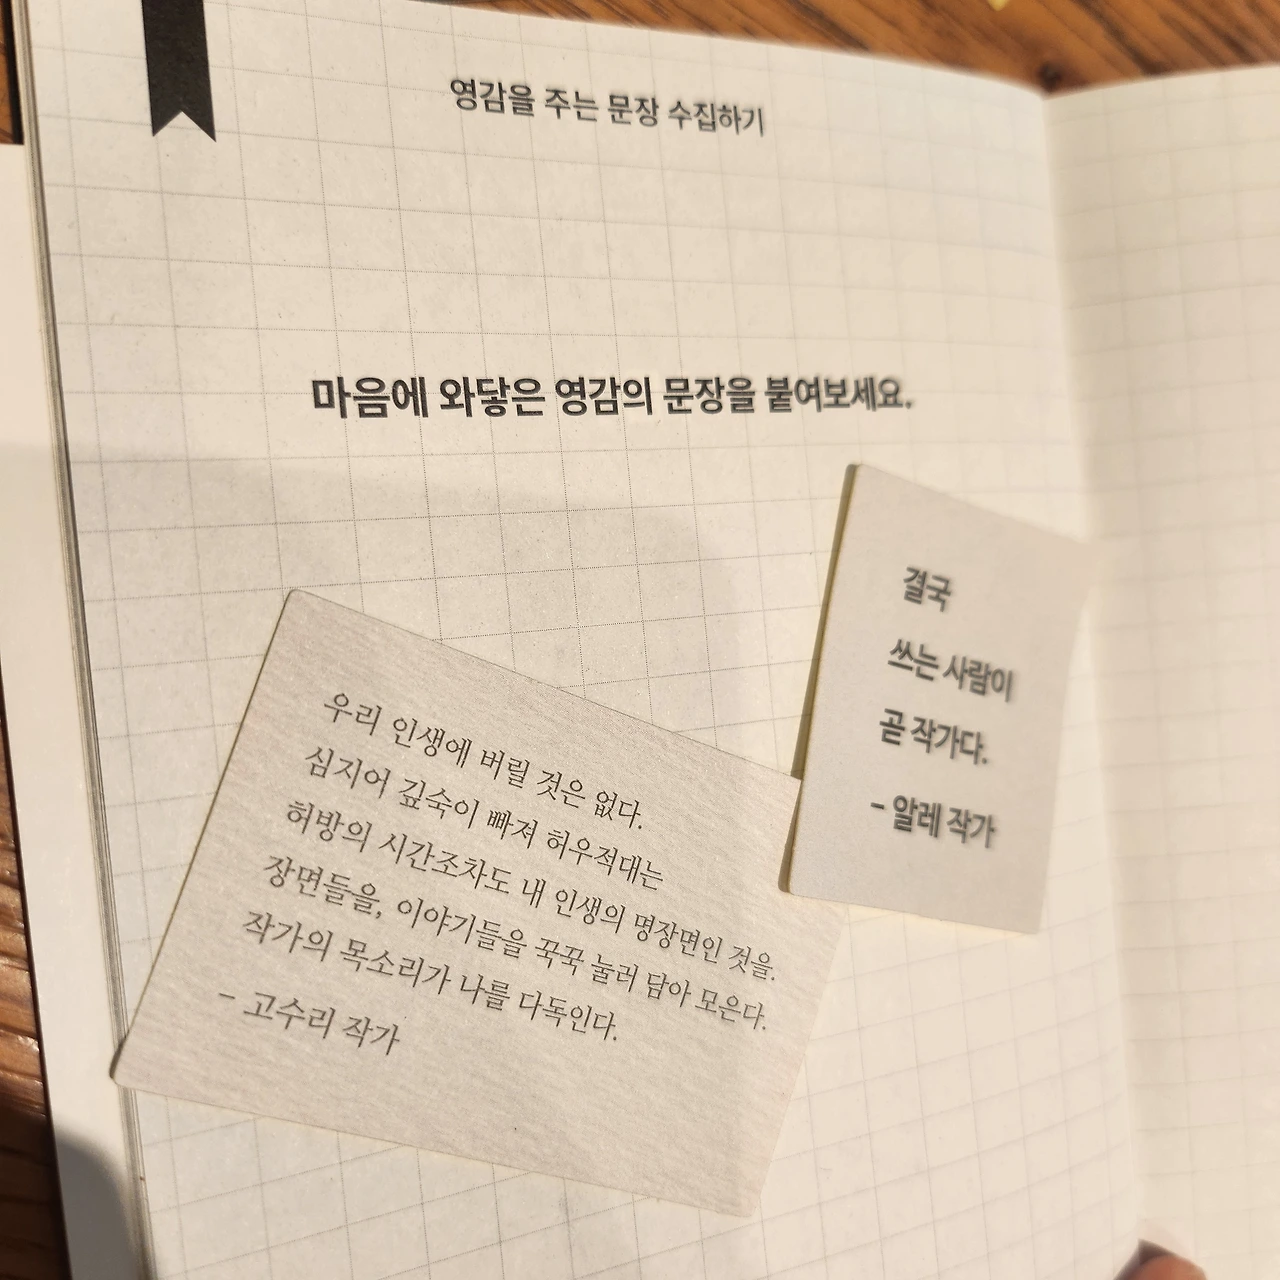 영감을 주는 문장 수집하기
마음에 와닿은 영감의 문장을 붙여보세요.
결국
쓰는 사람이
곧 작가다.
- 알레 작가
우리 인생에 버릴 것은 없다.
심지어 깊숙이 빠져 허우적대는
허방의 시간조차도 내 인생의 명장면인 것을.
장면들을, 이야기들을 꾹꾹 눌러 담아 모은다.
작가의 목소리가 나를 다독인다.
- 고수리 작가